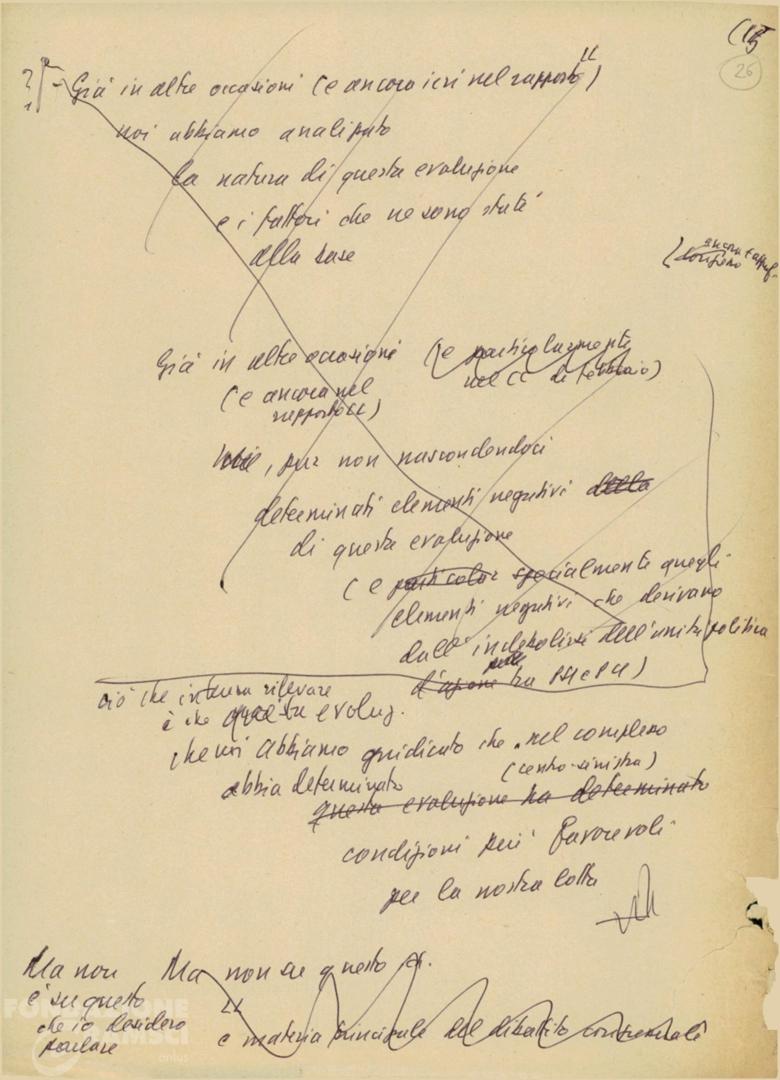 26
Già in altre occasioni (e ancora ieri nel rapporto)
noi abbiamo analizzato
la natura di questa evoluzione
e i fattori che ne sono stati
alla base
Già in altre occasioni (e particolarmente
nel CC di febbraio)
(e ancora nel
rapporto CC)
, pur non nascondendoci
determinati elementi negativi della
di questa evoluzione
(e particolar specialmente quegli
elementi negativi che derivano
dall'indebolirsi dell'unità politica
d'azione tra PSI e PCI)
ciò che rilevare
è che questa evoluz.
che noi abbiamo giudicato che nel complesso
(centro-sinistra)
abbia determinato
questa evoluzione ha determinato
condizioni più favorevoli
per la nostra lotta
Ma non Ma non su questo
è su questo
che io desidero
parlare
è materia principale del dibattito congressuale
FONDAZIONE
GRAMSCI
onlus